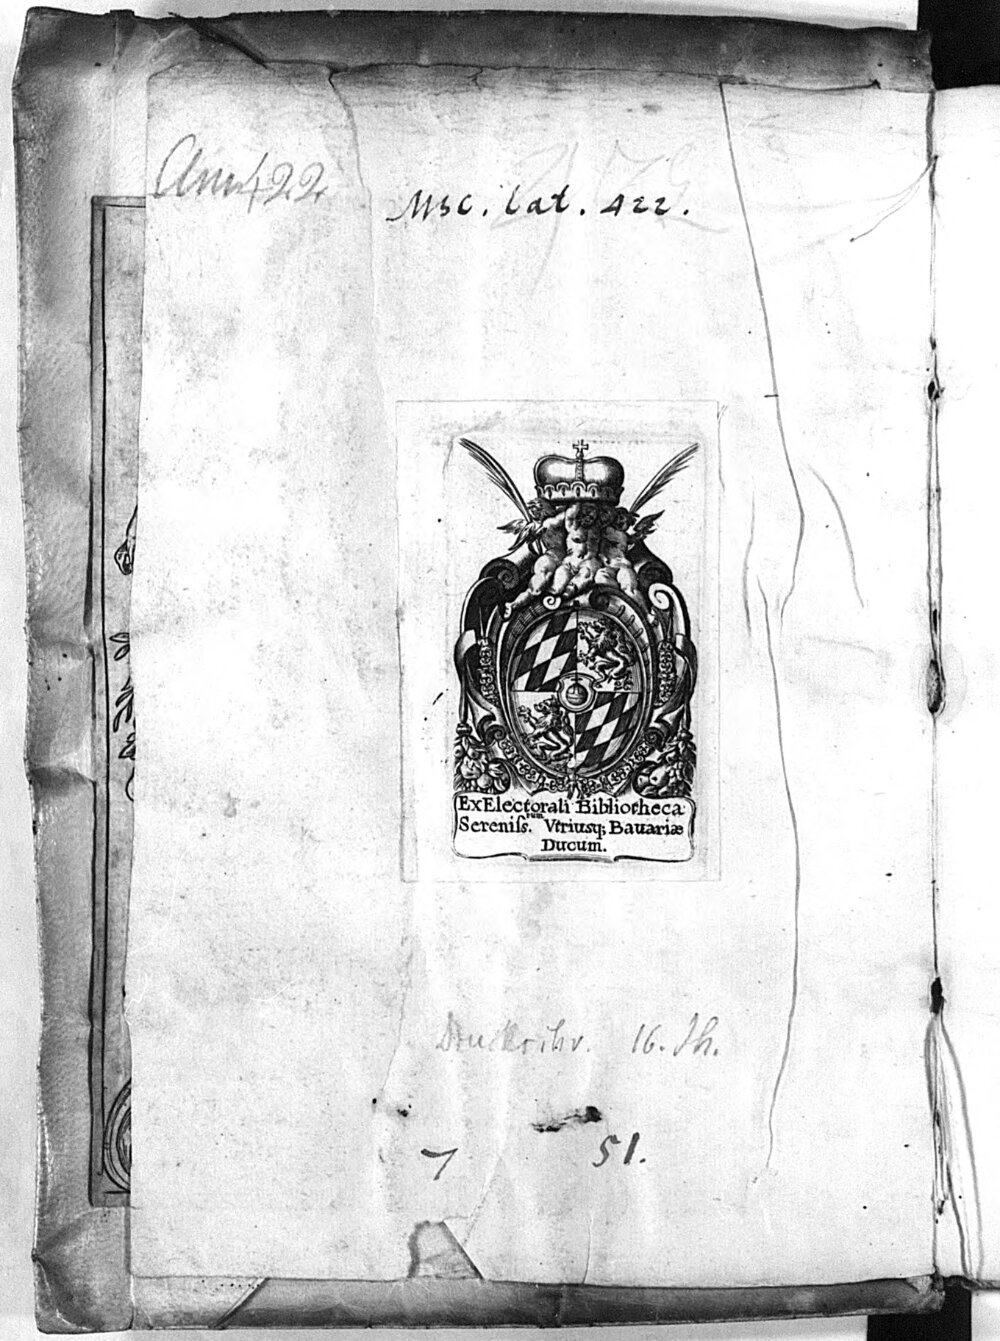 Clm 422
Msc. lat. 422.
Ex Electorali Bibliotheca
Sereniſs.rum Vtriusq; Bauariæ
Ducum.
16. Jh.
7 51.